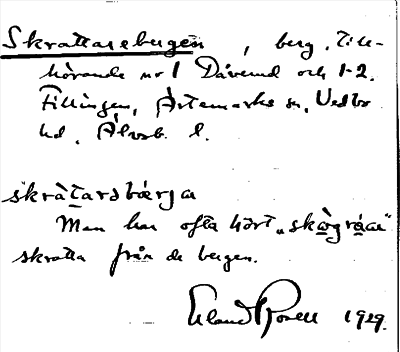 Skrattarebergen, berg, till-
hörande nr 1 Dåverud och 1-2.
Fillingen, Ärtemarks sn, Vedbo
hd, Älvsb. l.
skràt̲arsbærja
Man har ofta hört „skògràa"
skratta från de bergen.
Erland Rosell 1929.